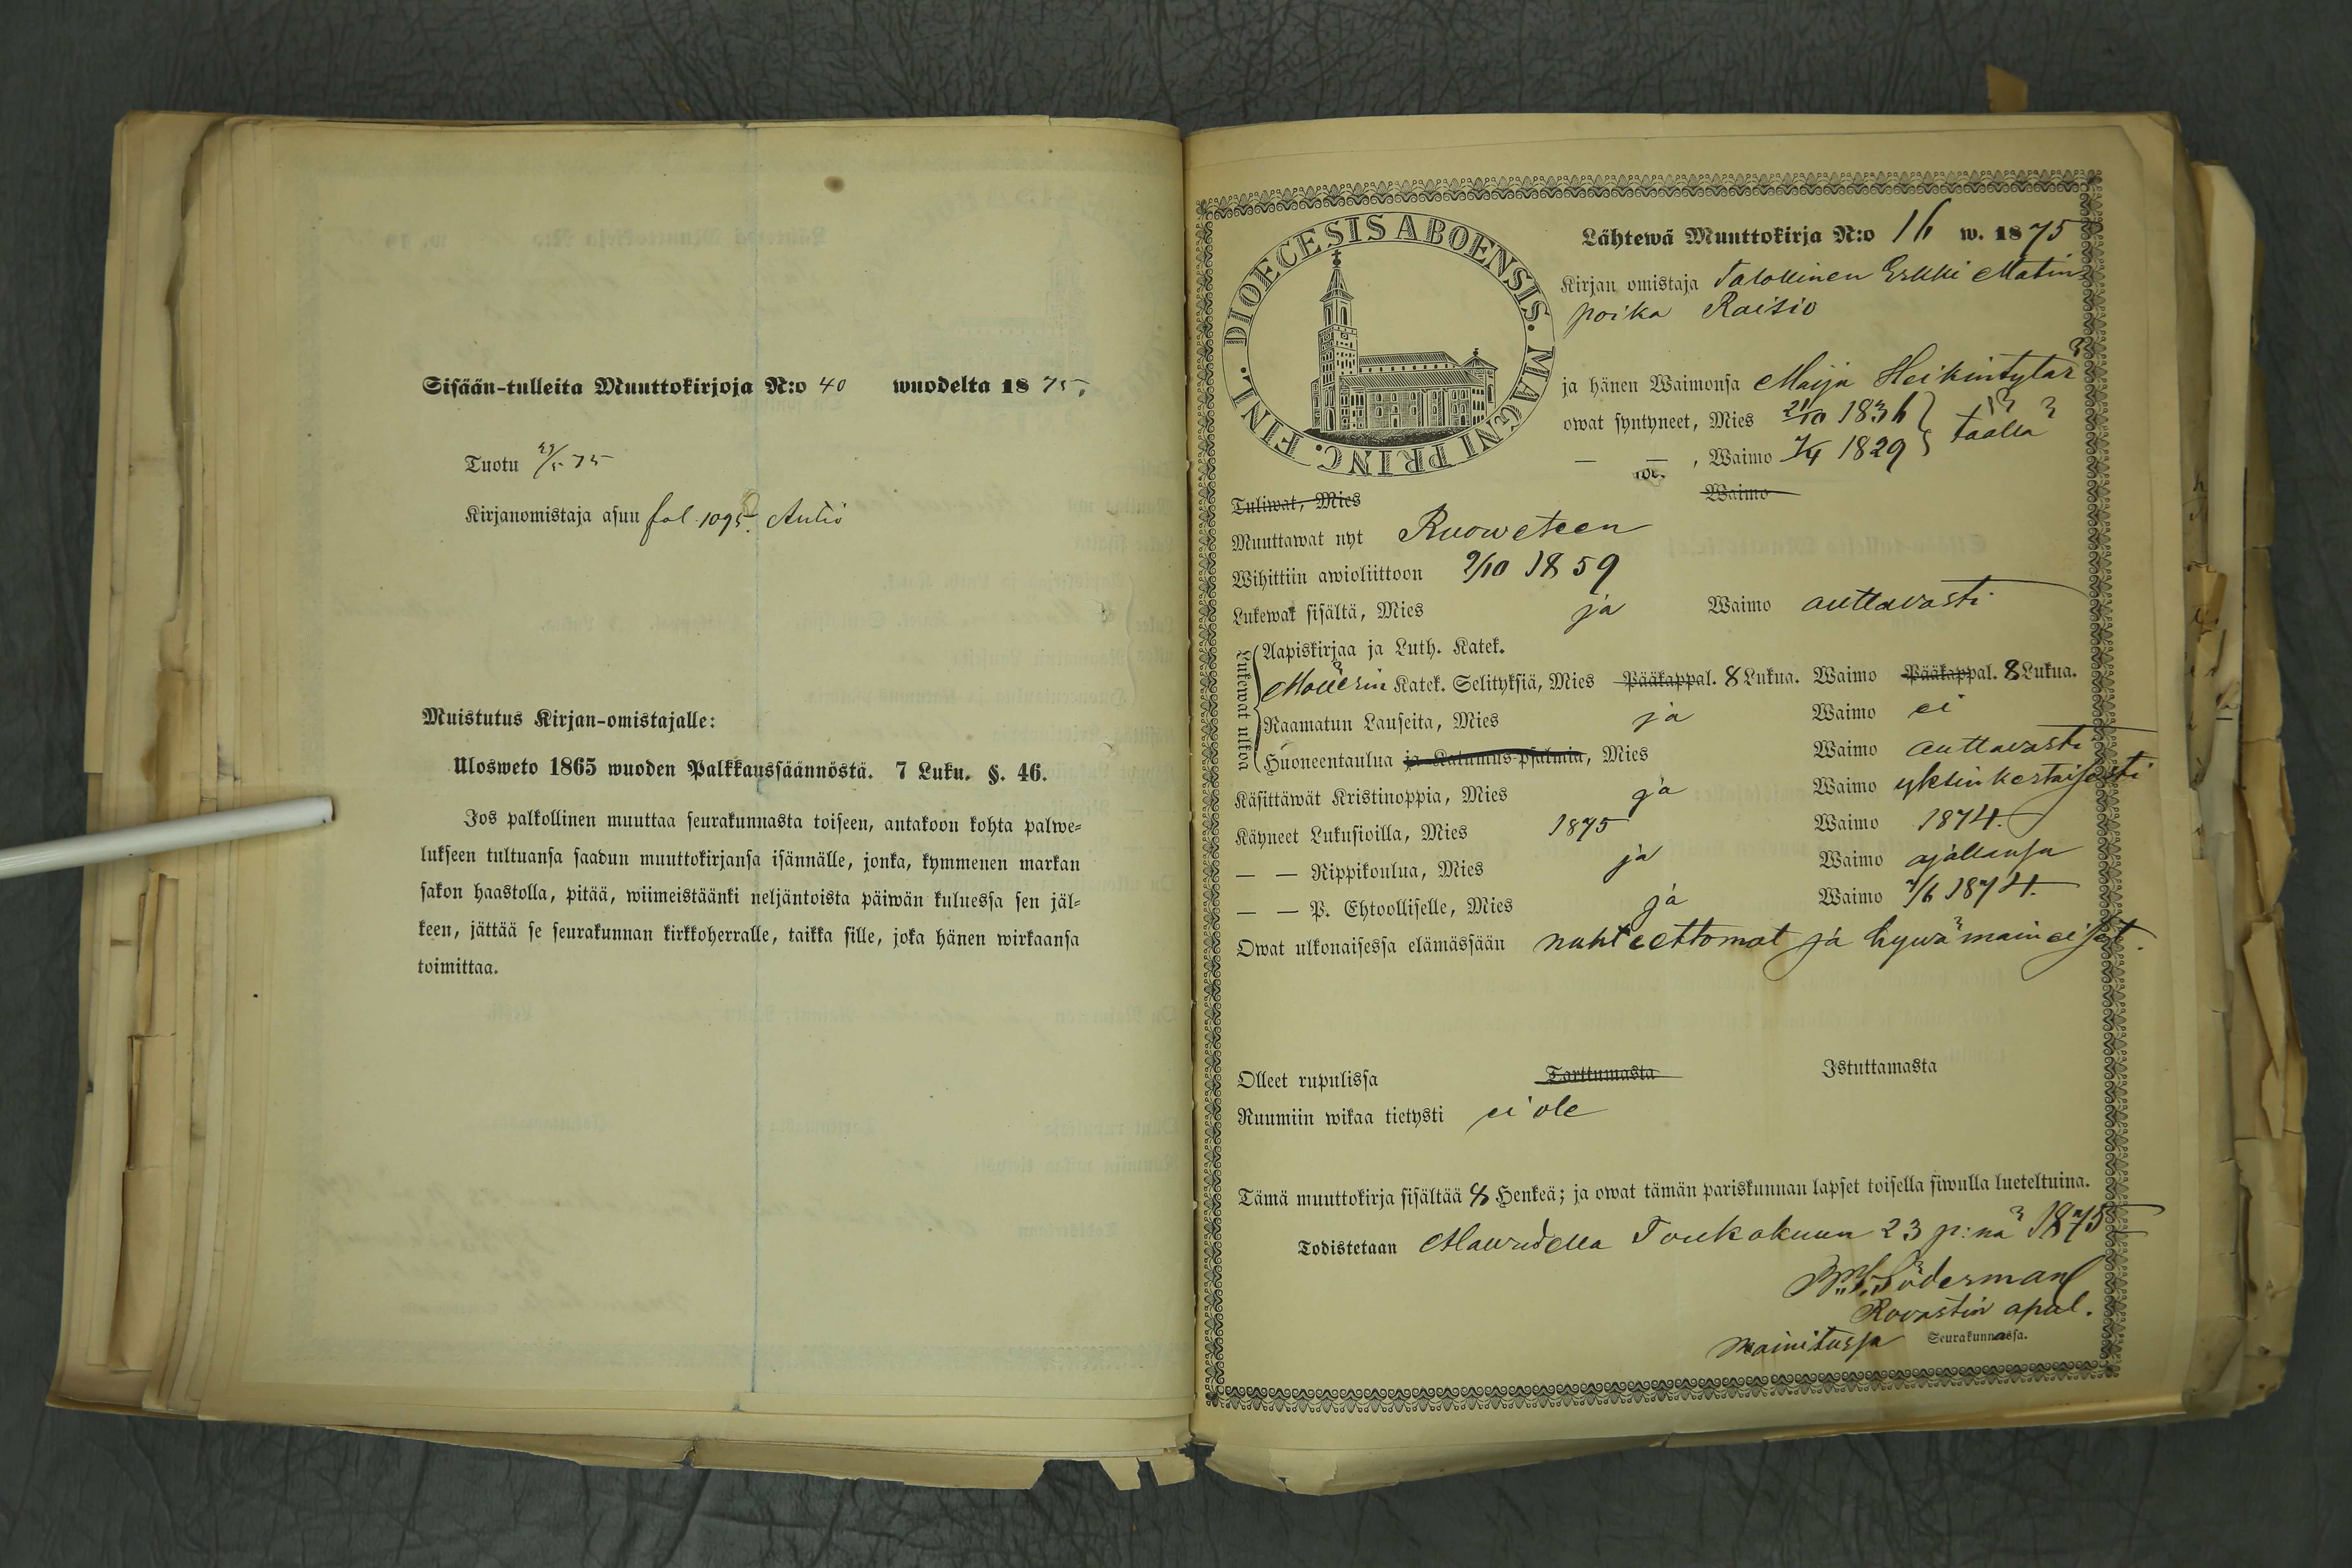 Sisään-tulleita Muuttokirjoja N:o 40 wuodelta 1875.
Tuotu 29/5 75
Kirjanomistaja asuu fol. 1095. Autio
Muistutus Kirjan-omistajalle:
Ulosweto 1865 wuoden Palkkaussäännöstä. 7 Luku. §. 46.
Jos palkollinen muuttaa seurakunnasta toiseen, antakoon kohta palwe-
lukseen tultuansa saadun muuttokirjansa isännälle, jonka, kymmenen markan
sakon haastolla, pitää, wiimeistäänki neljäntoista päiwän kuluessa sen jäl-
keen, jättää se seurakunnan kirkkoherralle, taikka sille, joka hänen wirkaansa
toimittaa.
DIOECESIS ABOENSIS. MAGNI PRINC. FINL.
Lähtewä Muuttokirja N:o 16 w. 1875
Kirjan omistaja Talollinen Erkki Matin
poika Raisio
ja hänen Waimonsa Maija Heikintytär
owat syntyneet, Mies 21/10 1836 } täällä
— — , Waimo 7/4 1829
Tuliwat, Mies Waimo
Muuttawat nyt Ruoweteen
Wihittiin awioliittoon 9/10 1859
Lukewat sisältä, Mies ja Waimo auttavasti
Lukewat ulkoa
Aapiskirjaa ja Luth. Katek.
Möllerin Katek. Selityksiä, Mies Pääkappal. 8 Lukua. Waimo Pääkappal. 8 Lukua.
Raamatun Lauseita, Mies ja Waimo ei
Huoneentaulua ja Katumus-psalmia, Mies Waimo auttavasti
Käsittäwät Kristinoppia, Mies ja Waimo yksinkertaisesti
Käyneet Lukusioilla, Mies 1875 Waimo 1874.
— — Rippikoulua, Mies ja Waimo ajallansa
— — P. Ehtoolliselle, Mies ja Waimo 7/6 1874.
Owat ulkonaisessa elämässään nuhteettomat ja hywämaineiset.
Olleet rupulissa Tarttumasta Istuttamasta
Ruumiin wikaa tietysti ei ole
Tämä muuttokirja sisältää 8 Henkeä; ja owat tämän pariskunnan lapset toisella siwulla lueteltuina.
Todistetaan Alawudella Toukokuun 23 p:nä 1875
Söderman
Rovastin apul.
mainitussa Seurakunnassa.